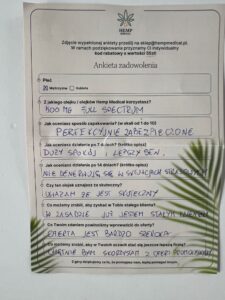 HEMP
Zdjęcie wypełnionej ankiety prześlij na sklep@hempmedical.pl
W ramach podziękowania przyznamy Ci indywidualny
kod rabatowy o wartości 50zł!
Ankieta zadowolenia
Płeć
Mężczyzna Kobieta
Z jakiego olejku / olejków Hemp Medical korzystasz?
FULL SPECTRUM
Jak oceniasz sposób zapakowania? (w skali od 1 do 10)
PERFEKCYJNIE ZABEZPIECZONE
Jak oceniasz działanie po 7 dniach? (krótka opinia)
DUŻY SPOKÓJ LEPSZY SEN.
Jak oceniasz działanie po 14 dniach? (krótka opinia)
NIE DENERWUJĘ SIĘ W SYTUACJACH STRESOWYCH
Czy ten olejek uznajesz za skuteczny?
UWAŻAM ŻE JEST SKUTECZNY
Co możemy zrobić, aby zyskać w Tobie stałego klienta?
W ZASADZIE JUŻ JESTEM STAŁYM KLIENTEM
Co Twoim zdaniem powinniśmy wprowadzić do oferty?
OFERTA JEST BARDZO SZEROKA
Co możemy zrobić, aby w Twoich oczach stać się jeszcze lepszą firmą?
CHĘTNIE BYM SKORZYSTAŁ Z OFERT